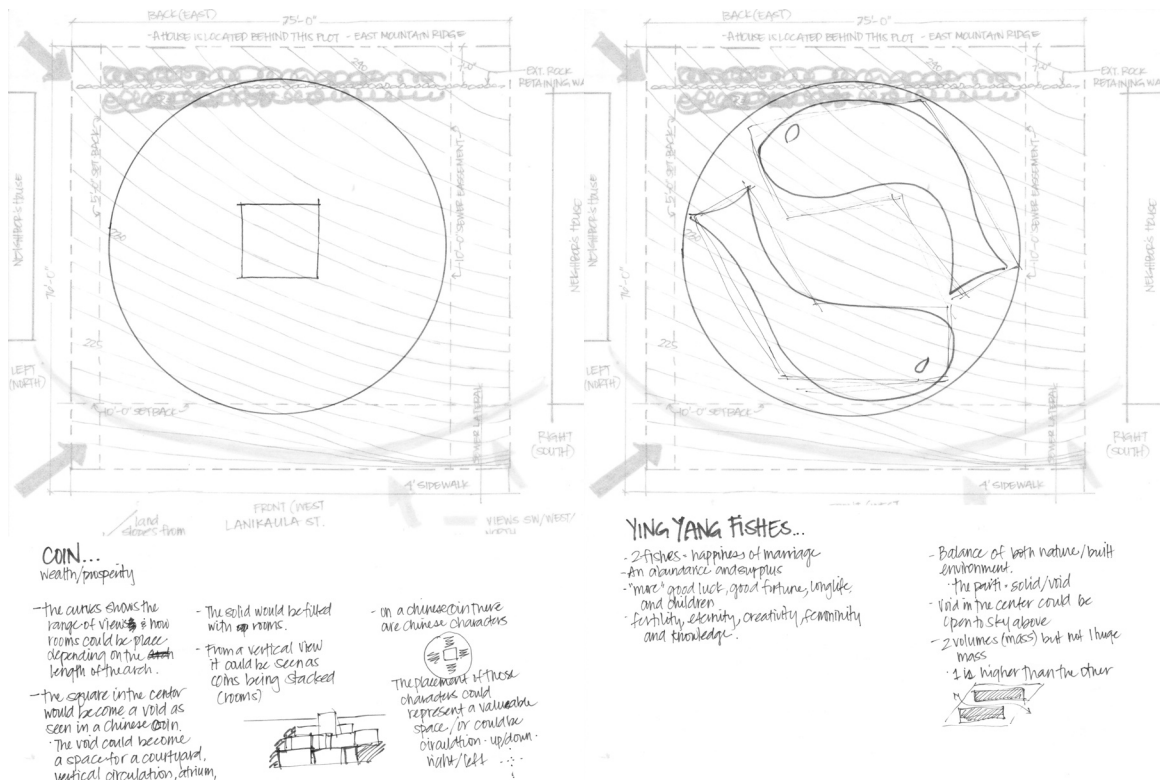 BACK (EAST)
25'-0"
-A HOUSE IS LOCATED BEHIND THIS PLOT - EAST MOUNTAIN RIDGE
240
EXT. ROCK
RETAINING WA
5'-0" SET BACK
10'-0" SEWER EASEMENT
NEIGHBOR'S HOUSE
NEIGHBOR'S HOUSE
230
225
LEFT
(NORTH)
10'-0" SETBACK
SEWER LATERAL
RIGHT
(SOUTH)
4' SIDEWALK
FRONT (WEST
LANIKAULA ST.
land
slopes from
VIEWS SW/WEST/
NORTH
COIN...
wealth/prosperity
- The curves shows the
range of views & how
rooms could be place
depending on the
length of the arch.
- The square in the center
would become a void as
seen in a Chinese Coin.
· The void could become
a space for a courtyard,
vertical circulation, atrium,
- The solid would be filled
with rooms.
- From a vertical view
it could be seen as
coins being stacked
(rooms)
- on a chinese coin there
are Chinese characters
The placement of those
characters could
represent a valueable
space/or could be
circulation - up/down -
right/left
BACK (EAST)
25'-0"
-A HOUSE IS LOCATED BEHIND THIS PLOT - EAST MOUNTAIN RIDGE
240
EXT. ROCK
RETAINING WA
5'-0" SET BACK
10'-0" SEWER EASEMENT
NEIGHBOR'S HOUSE
NEIGHBOR'S HOUSE
230
225
LEFT
(NORTH)
10'-0" SETBACK
SEWER LATERAL
RIGHT
(SOUTH)
4' SIDEWALK
YING YANG FISHES...
- 2 fishes - happiness of marriage
- An abundance and surplus
- "more" good luck, good fortune, longlife,
and children
- fertility, eternity, creativity, femininity
and knowledge.
- Balance of both nature/built
environment.
· The parti - solid/void
- Void in the center could be
open to sky above
- 2 volumes (mass) but not 1 huge
mass
· 1 is higher than the other